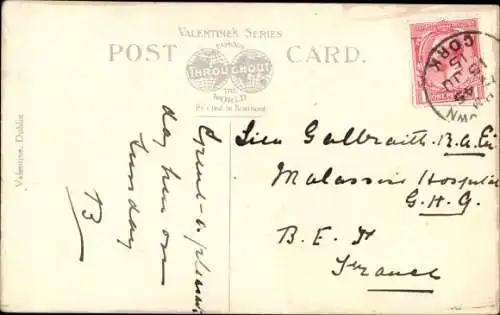 VALENTINE'S SERIES
POST CARD.
FAMOUS
THROUGHOUT
THE
WORLD
Printed in Scotland
Valentine, Dublin
CORK
15 JU
15
Spent a pleasant
day here on
Tuesday
B
Lieu Galbraith
Malassise Hospital
G.H.Q.
B. E. F.
France